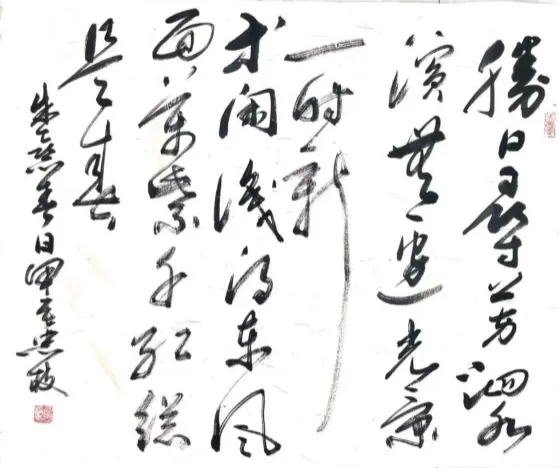 勝日尋芳泗水
濱無邊光景
一時新
等閑識得東風
面萬紫千紅總
是春
朱熹春日甲辰